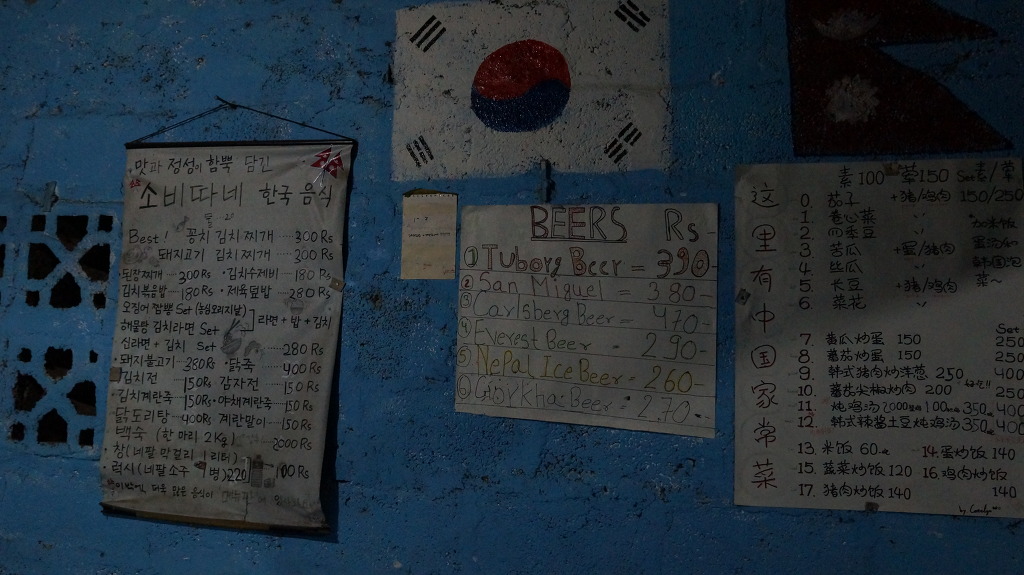 맛과 정성이 함뿍 담긴
소비따네 한국 음식
Best! 꽁치 김치찌개 300 Rs
돼지고기 김치찌개 200 Rs
된장찌개 300 Rs · 김치수제비 180 Rs
김치볶음밥 180 Rs · 제육덮밥 280 Rs
오징어 짬뽕 Set (농심오리지날)
해물탕 김치라면 Set ] 라면 + 밥 + 김치
신라면 + 김치 Set 280 Rs
· 돼지불고기 380 Rs · 닭죽 400 Rs
김치전 150 Rs 감자전 150 Rs
· 김치계란죽 150 Rs · 야채계란죽 150 Rs
닭도리탕 400 Rs 계란말이 150 Rs
백숙 (한 마리 2Kg) 2000 Rs
· 창(네팔 막걸리 1리터) 100 Rs
· 럭시(네팔소주 병) 220
BEERS Rs
① Tuborg Beer = 390-
② San Miguel = 380-
③ Carlsberg Beer = 470-
④ Everest Beer = 290-
⑤ Nepal Ice Beer = 260-
⑥ Gorkha Beer = 270-
这里有中国家常菜
素100 荤150 Set 素/荤
0. 茄子 +猪/鸡肉 150/250
1. 卷心菜 〃
2. 四季豆 〃
3. 苦瓜 +蛋/猪肉
4. 丝瓜 〃
5. 长豆 +猪/鸡肉
6. 菜花 〃
加米饭
蛋汤和
韩国泡
菜~
Set
7. 黄瓜炒蛋 150 250
8. 蕃茄炒蛋 150 250
9. 韩式猪肉炒洋葱 250 400
10. 蕃茄尖椒炒肉 200 好吃!! 250
11. 炖鸡汤 350 400
12. 韩式辣酱土豆炖鸡汤 350 400
13. 米饭 60 14. 蛋炒饭 140
15. 蔬菜炒饭 120 16. 鸡肉炒饭
17. 猪肉炒饭 140 140